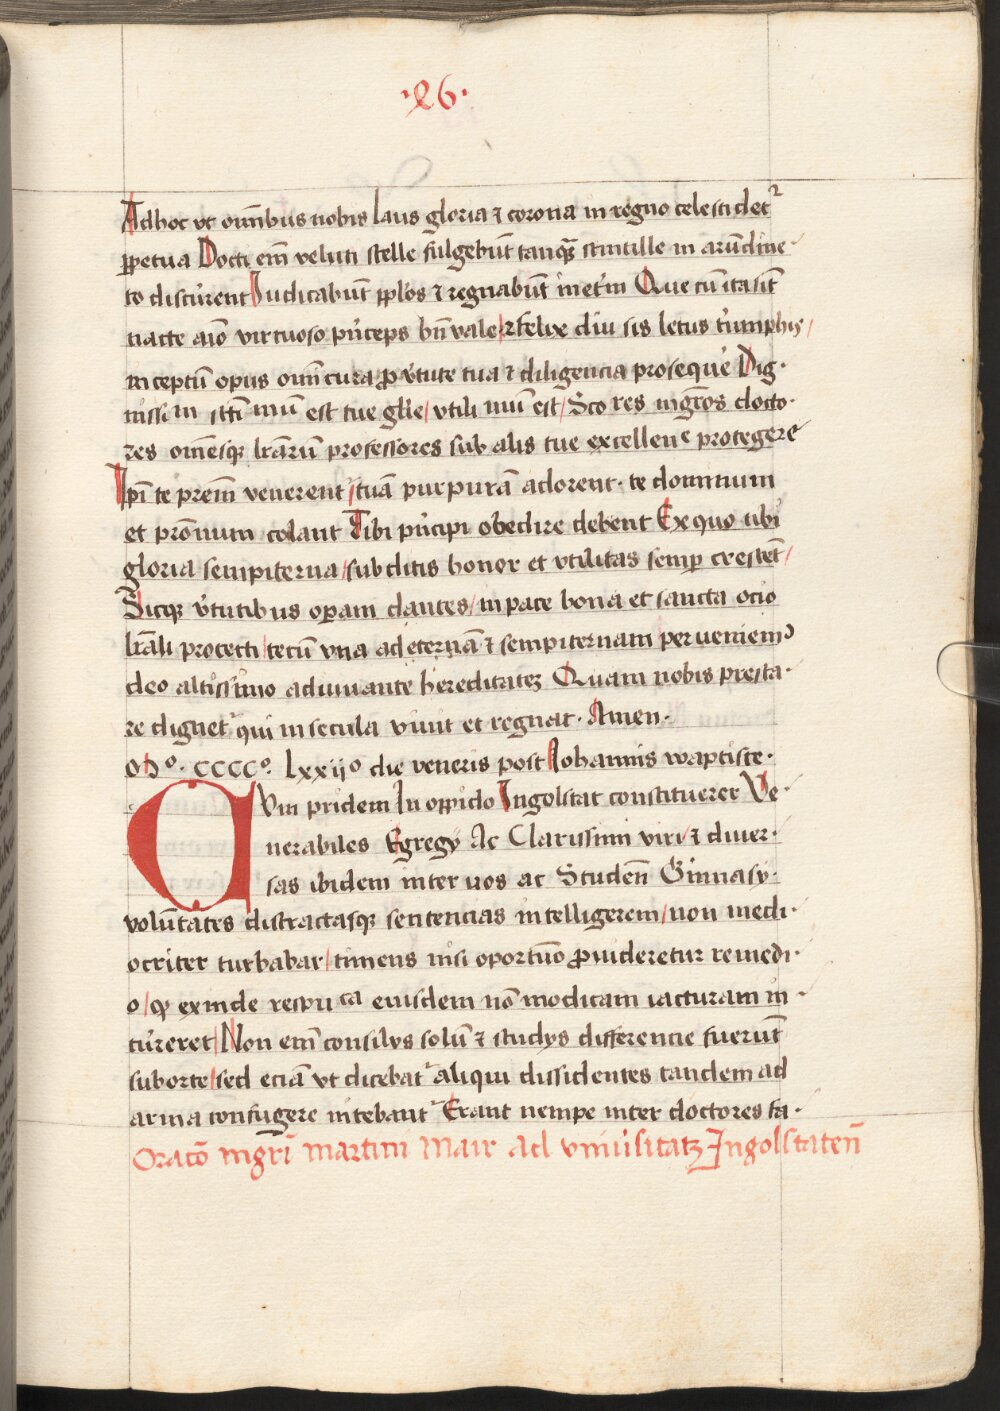 ·26·
Adhoc vt omībus nobis laus gloria ⁊ corona in regno celesti det᷑
ꝑpetua Docti em̄ veluti stelle fulgebūt tanqꝫ scintille in arūdine·
to discurrent Iudicabūt ppl̓os ⁊ regnabūt inet̓m Que cū ita sīt
macte aīo virtuoso pn̓ceps bn̄ vale / ⁊ felix diu sis letus tūmphis /
Inceptū opus omī cura ꝓ v̓tute tua ⁊ diligencia proseque Dig·
nissimū est tue glīe / vtilimū est / Sco res mgr̄os docto·
res omēsqꝫ lrārū professores sub alis tue excellenc̄e protegere
Ip̄i te prem̄ venerent᷑ / tuā purpurā adorent· te dominum
et prōnum colant Tibi pn̓cipi obedire debent Ex quo tibi
gloria sempiterna / subditis honor et vtilitas semꝑ crescet /
Sicqꝫ v̓tutibus oꝑam dantes / in pace bona et sancta ocio
lrāli protecti / tecū vna ad eternā ⁊ sempiternam perueniemꝰ
deo altissimo adiuuante hereditateꝫ Quam nobis presta·
re dignet᷑ qui in secula viuit et regnat· Amen·
Mº· CCCCº· Lxxijº die veneris post Iohannis waptiste·
Cvm pridem In opido Ingolstat constituerer Ve·
nerabiles Egregÿ Ac Clarissimi viri / ⁊ diuer·
sas ibidem inter uos ac Studen̄ Gimnasÿ·
volūtates distractasqꝫ sentencias intelligerem / non medi·
ocriter turbabar / timens nisi oportūo ꝓuideretur remedi·
o / qꝫ exinde respuca eiusdem nō modicam iacturam in·
cur̓eret / Non em̄ consilys solū ⁊ studys differencie fuerūt
suborte / sed eciā vt dicebat᷑ aliqui dissidentes tandem ad
arma confugere nitebant᷑ Erant nempe inter doctores fa·
Oracō mgr̄i martini mair ad vniu̓sitatꝫ Ingolstaten̄